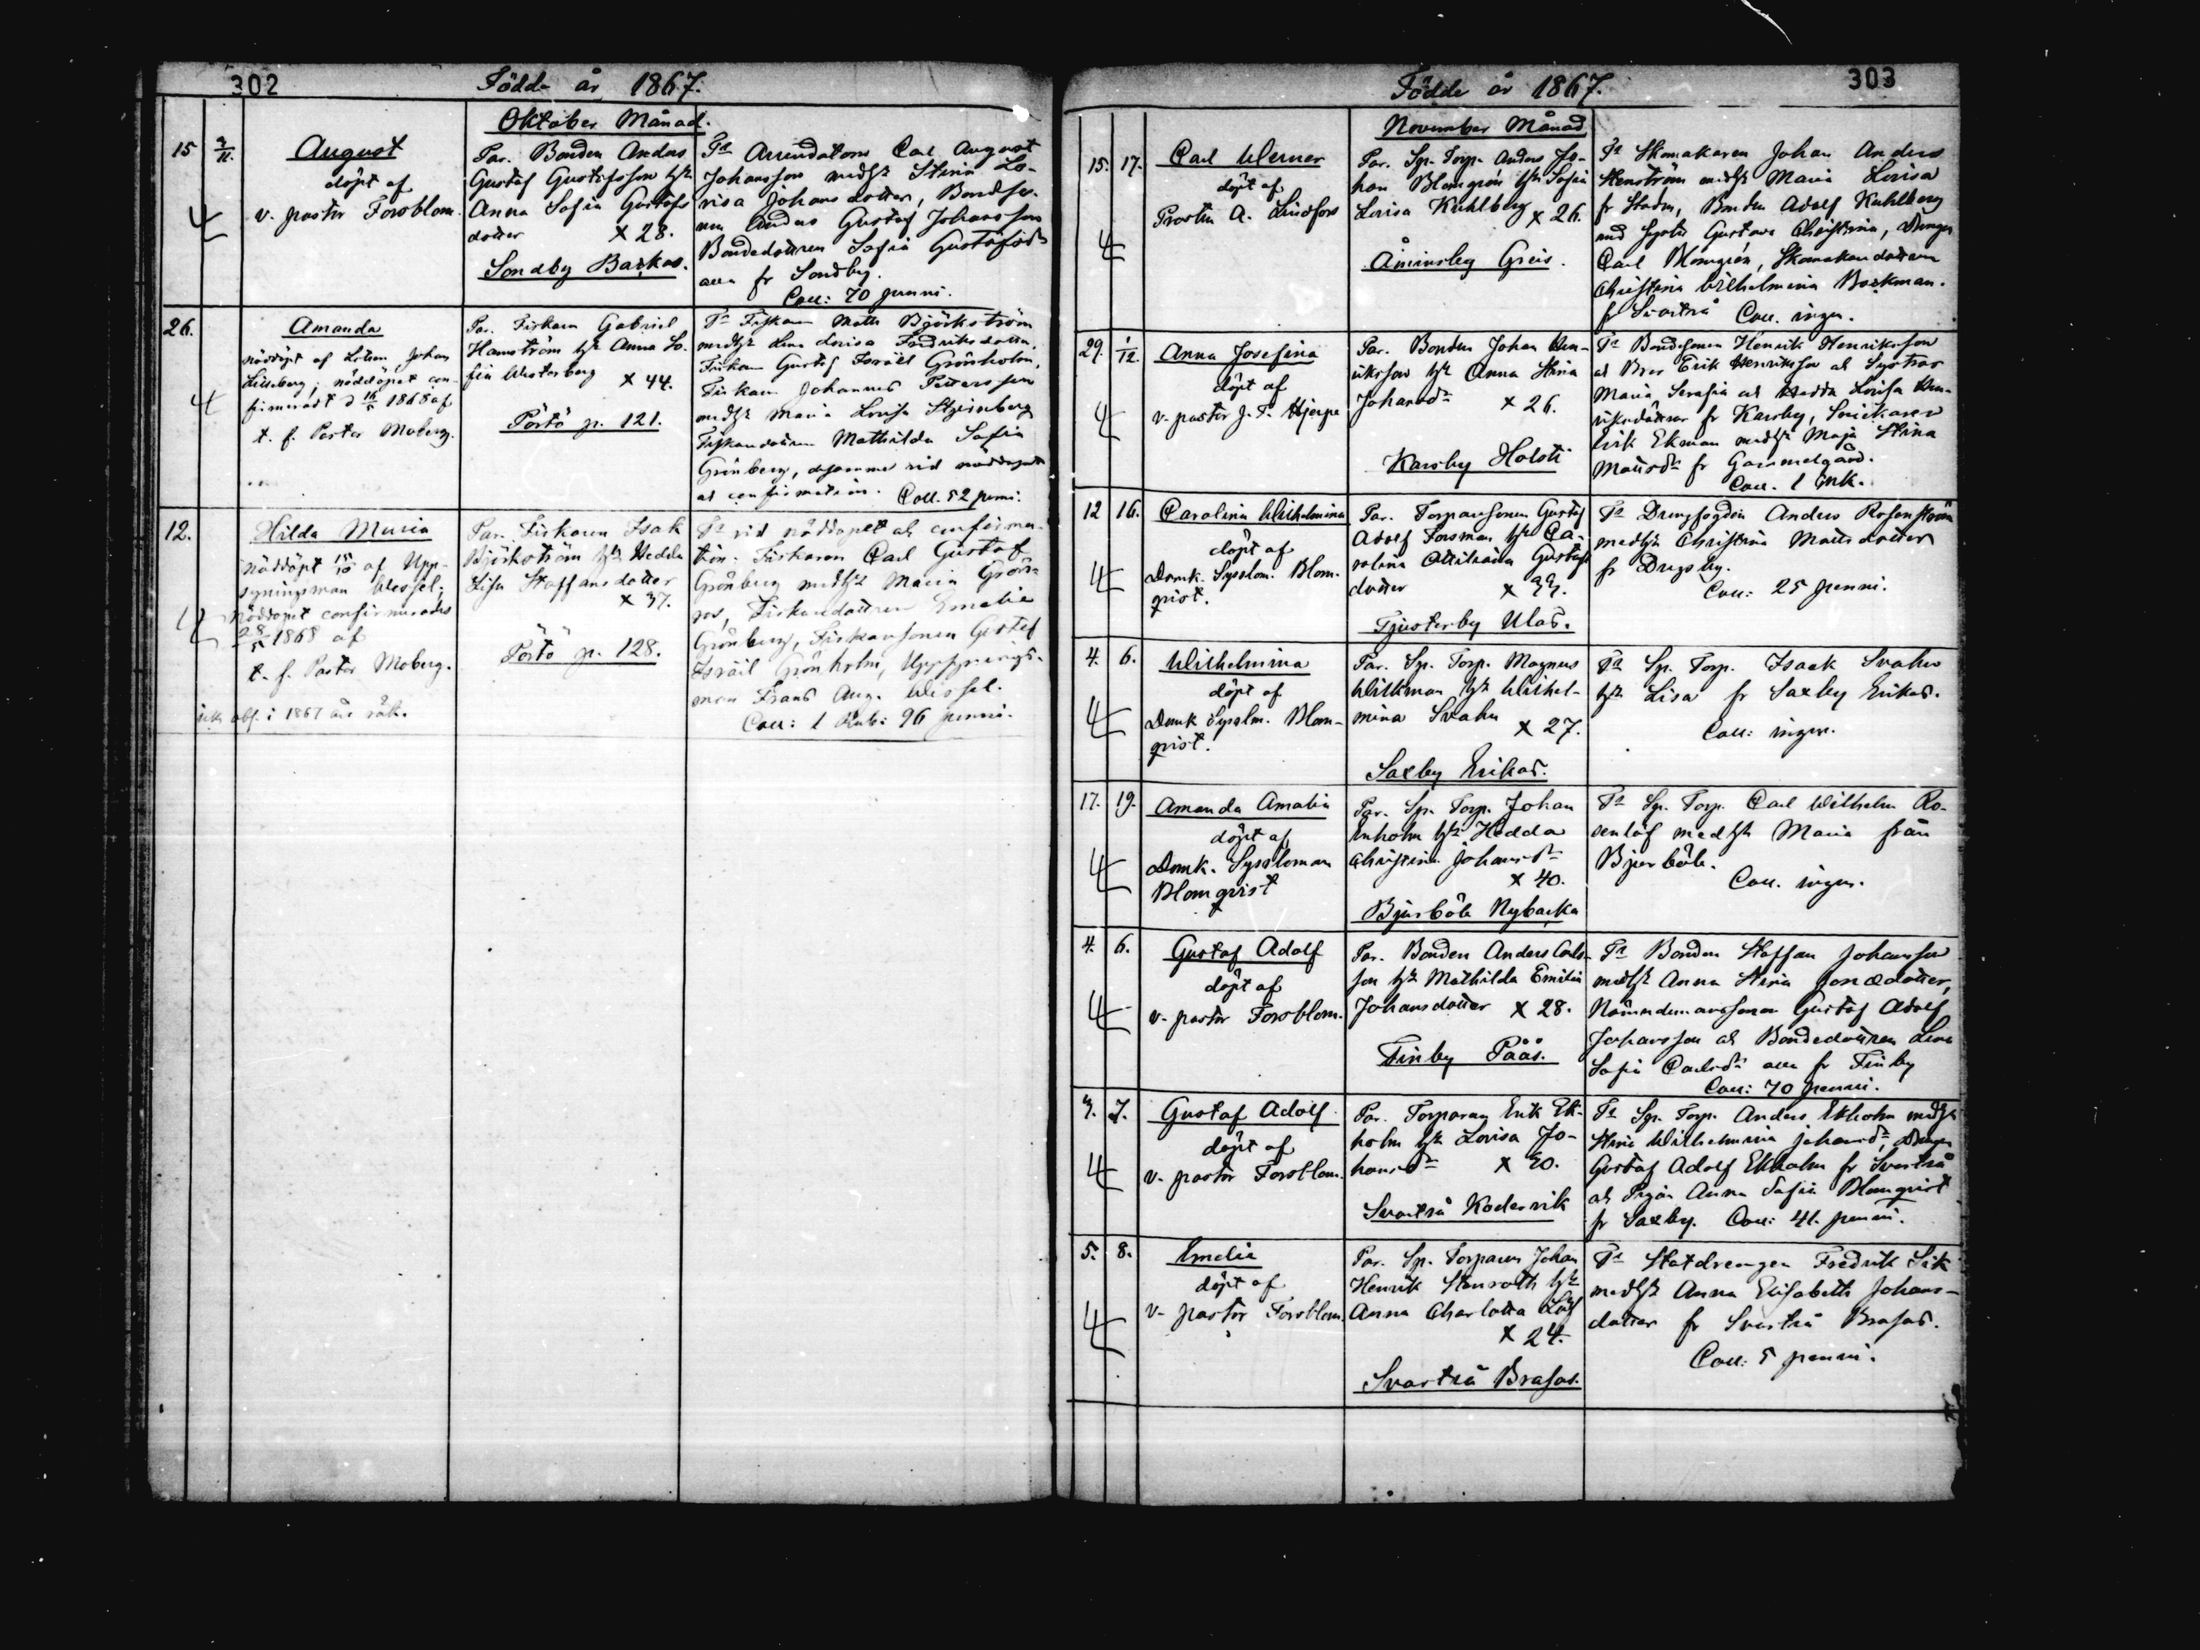 302
Födde år 1867.
Oktober Månad.
15
2/11.
August
döpt af
v. pastor Forsblom.
Par. Bonden Anders
Gustaf Gustafsson hst
Anna Sofia Gustafs
dotter × 28.
Sondby Backas.
Ts Arrendatorn Carl August
Johansson medhst Stina Lo-
visa Johansdotter, Bondeso-
nen Anders Gustaf Johansson
Bondedottren Sofia Gustafsdr
alla fr Sondby.
Coll: 70 penni.
26.
Amanda
nöddöpt af Johan
Lilleberg; nöddopet con-
firmeradt d 1868 af
t. f. Pastor Moberg.
Par. Fiskaren Gabriel
hst Anna So-
fia Westerberg × 44.
Pörtö p. 121.
Ts Fiskaren Matts Björkström
medhst Lena Lovisa Fredriksdotter,
Fiskaren Gustaf Israel Grönholm,
Fiskaren Johannes
medhst Maria Lovisa
Fiskaredottren Mathilda Sofia
Grönberg, desamma vid nöddopet
och confirmation. Coll. 52 penni.
12.
Hilda Maria
Nöddöpt 15/10 af Upp-
syningsman Wessel;
Nöddopet confirmerades
28/5 1868 af
t. f. Pastor Moberg.
icke abs. i 1867 års räk.
Par. Fiskaren Isak
Björkström hst Hedda
Lisa Staffansdotter
× 37.
Pörtö p. 128.
Ts vid nöddopet och confirma-
tion. Fiskaren Carl Gustaf
Grönberg medhst Maria
Fiskaredottren Emelie
Grönberg, Fiskaresonen Gustaf
Israël Grönholm, Uppsynings-
man Frans Aug. Wessel.
Coll: 1 Rub: 96 penni.
Födde år 1867.
303
November Månad
15. 17.
Carl Werner
döpt af
Prosten A. Lindfors
Par. Sp. Torp. Anders Jo-
han Blomgrén hst Sofia
Lovisa Kuhlberg × 26.
Åminsby Greis.
Ts Skomakaren Johan Anders
Stenström medhst Maria Lovisa
fr Staden, Bonden Adolf Kuhlberg
med Syster Gustava Christina, Drengen
Carl Blomgrén, Skomakaredottren
Christina Wilhelmina Backman.
fr Svartså Coll. ingen.
29. 1/12.
Anna Josefina
döpt af
v. pastor J. T. Hjerpe
Par. Bonden Johan Hen-
riksson hst Anna Stina
Johansdr × 26.
Karsby Holsti
Ts Bondesonen Henrik Henriksson
och Bror Erik Henriksson och Systrar
Maria Serafia och Hedda Lovisa Hen-
riksdöttrar fr Karsby, Snickaren
Erik Ekman medhst Maja Stina
Mattsdr fr Gammelgård.
Coll. 1 mk.
12 16.
Carolina Wilhelmina
döpt af
Domk. Sysslom. Blom-
qvist.
Par. Torparesonen Gustaf
Adolf Forsman hst Ca-
rolina Gustafs
dotter × 33.
Tjusterby Ulas.
Ts Drengfogden Anders Rosenström
medhst Christina Mattsdotter
fr Drugsby.
Coll: 25 penni.
4. 6.
Wilhelmina
döpt af
Domk Sysslm. Blom-
qvist.
Par. Sp. Torp. Magnus
Wilkman hst Wilhel-
mina Svahn × 27.
Saxby Erikas.
Ts Sp. Torp. Isaak Svahn
hst Lisa fr Saxby Erikas.
Coll: ingen.
17. 19.
Amanda Amalia
döpt af
Domk. Syssloman
Blomqvist
Par. Sp. Torp. Johan
Enholm hst Hedda
Christina Johansdr
× 40.
Bjurböle Nybacka
Ts Sp. Torp. Carl Wilhelm Ro-
senlöf medhst Maria från
Bjurböle.
Coll. ingen.
4. 6.
Gustaf Adolf
döpt af
v. pastor Forsblom.
Par. Bonden Anders Carls-
son hst Mathilda Emilia
Johansdotter × 28.
Finby Pååς.
Ts Bonden Staffan Johansson
medhst Anna Stina Jonædotter,
Nämndemanssonen Gustaf Adolf
Johansson och Bondedottren Lena
Sofia Carlsdr alla fr Finby
Coll: 70 penni.
3. 7.
Gustaf Adolf
döpt af
v. pastor Forsblom.
Par. Torparen Erik Ek-
holm hst Lovisa Jo-
hansdr × 30.
Svartså Kodervik
Ts Sp. Torp. Anders Ekholm medhst
Stina Wilhelmina Johansdr, Drengen
Gustaf Adolf Ekholm fr Svartså
och Pigan Anna Sofia Blomqvist
fr Saxby. Coll: 41. penni.
5. 8.
Emelie
döpt af
v. pastor Forsblom.
Par. Sp. Torparen Johan
Henrik Stenroth hst
Anna Charlotta Löf
× 24.
Svartså Brasas.
Ts Statdrengen Fredrik Sik
medhst Anna Elisabeth Johans-
dotter fr Svartså Brasas.
Coll: 5 penni.